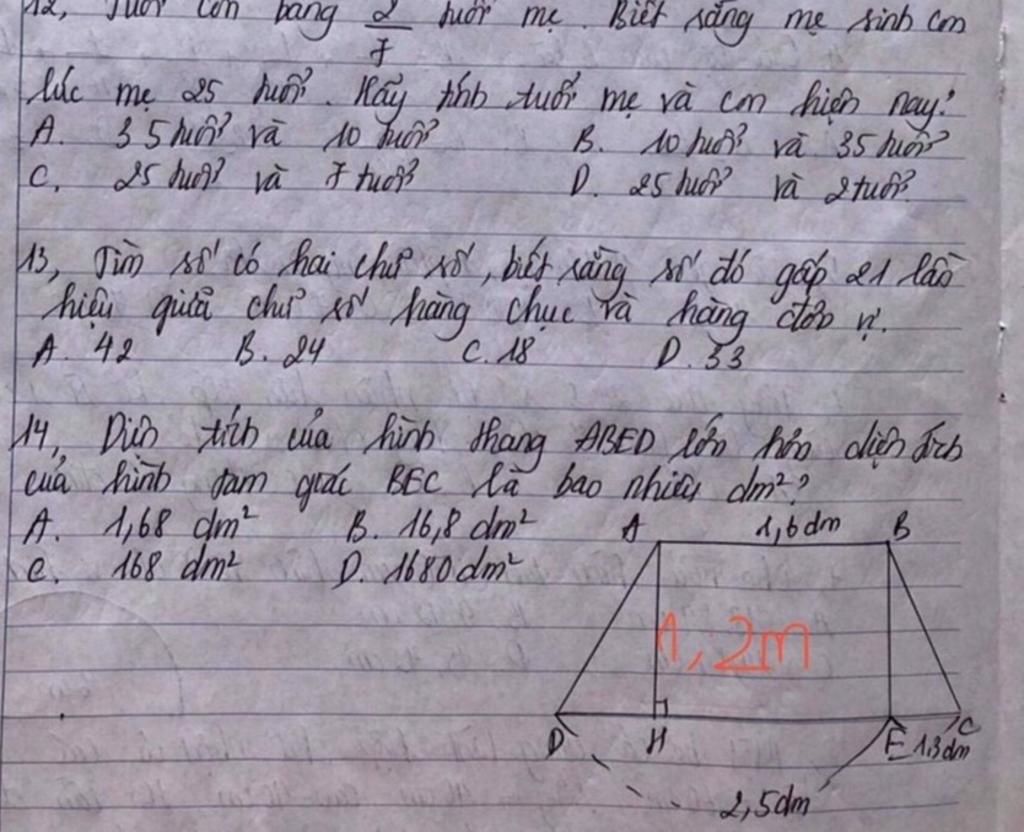 12, Tuổi con bằng 2/7 tuổi mẹ. Biết rằng mẹ sinh con
lúc mẹ 25 tuổi. Hãy tính tuổi mẹ và con hiện nay?
A. 35 tuổi và 10 tuổi B. 10 tuổi và 35 tuổi
C. 25 tuổi và 7 tuổi D. 25 tuổi và 2 tuổi.
13, Tìm số có hai chữ số, biết rằng số đó gấp 21 lần
hiệu giữa chữ số hàng chục và hàng đơn vị.
A. 42 B. 24 C. 18 D. 33
14, Diện tích của hình thang ABED lớn hơn diện tích
của hình tam giác BEC là bao nhiêu dm²?
A. 1,68 dm² B. 16,8 dm²
C. 168 dm² D. 1680 dm²
A 1,6dm B
1,2m
D H E 1,3dm C
2,5dm